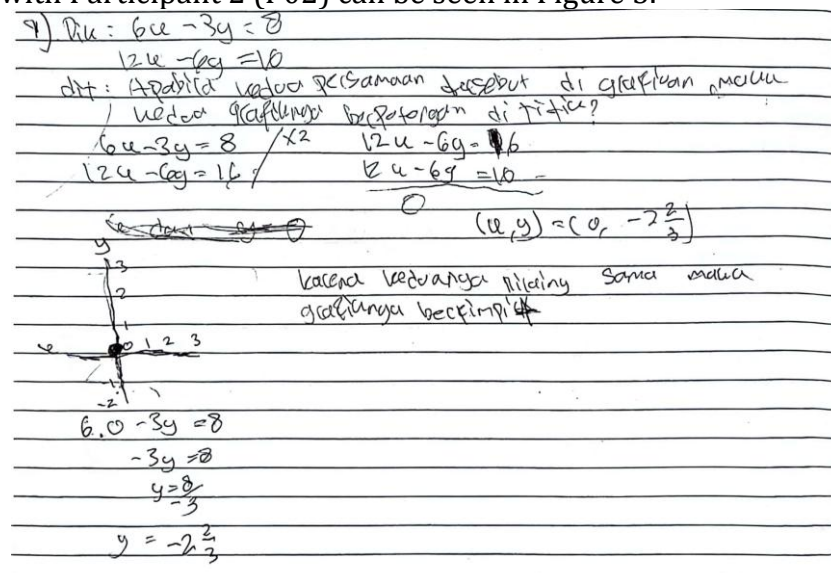 with Participant 2 (P02) can be seen in Figure 3.
9) Dik : 6x - 3y = 8
12x - 6y = 10
dit : Apabila kedua persamaan tersebut di grafikan maka
kedua grafiknya berpotongan di titik?
6x - 3y = 8 / x2 12x - 6y = 16
12x - 6y = 16 12x - 6y = 10 -
0
(x, y) = (0, -2 2/3)
y
3
2
1
x 0 1 2 3
-1
-2
karena keduanya nilainy sama maka
grafiknya berhimpit
6.0 - 3y = 8
-3y = 8
y = 8/-3
y = -2 2/3